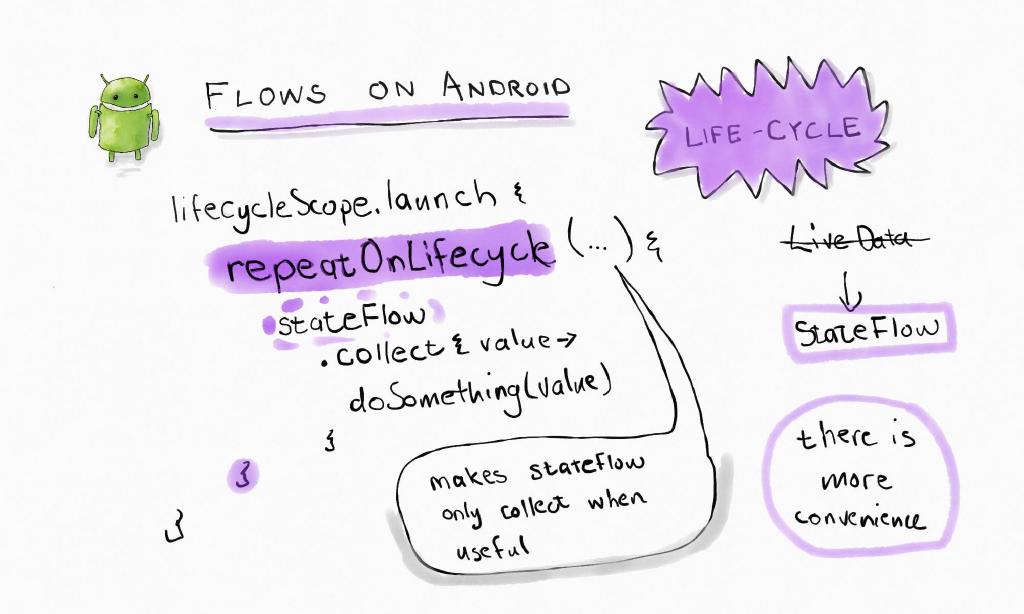 FLOWS ON ANDROID
LIFE-CYCLE
lifecycleScope.launch {
repeatOnLifecycle (...) {
stateFlow
.collect { value →
doSomething(value)
}
}
}
makes stateFlow
only collect when
useful
LiveData
↓
StateFlow
there is
more
convenience